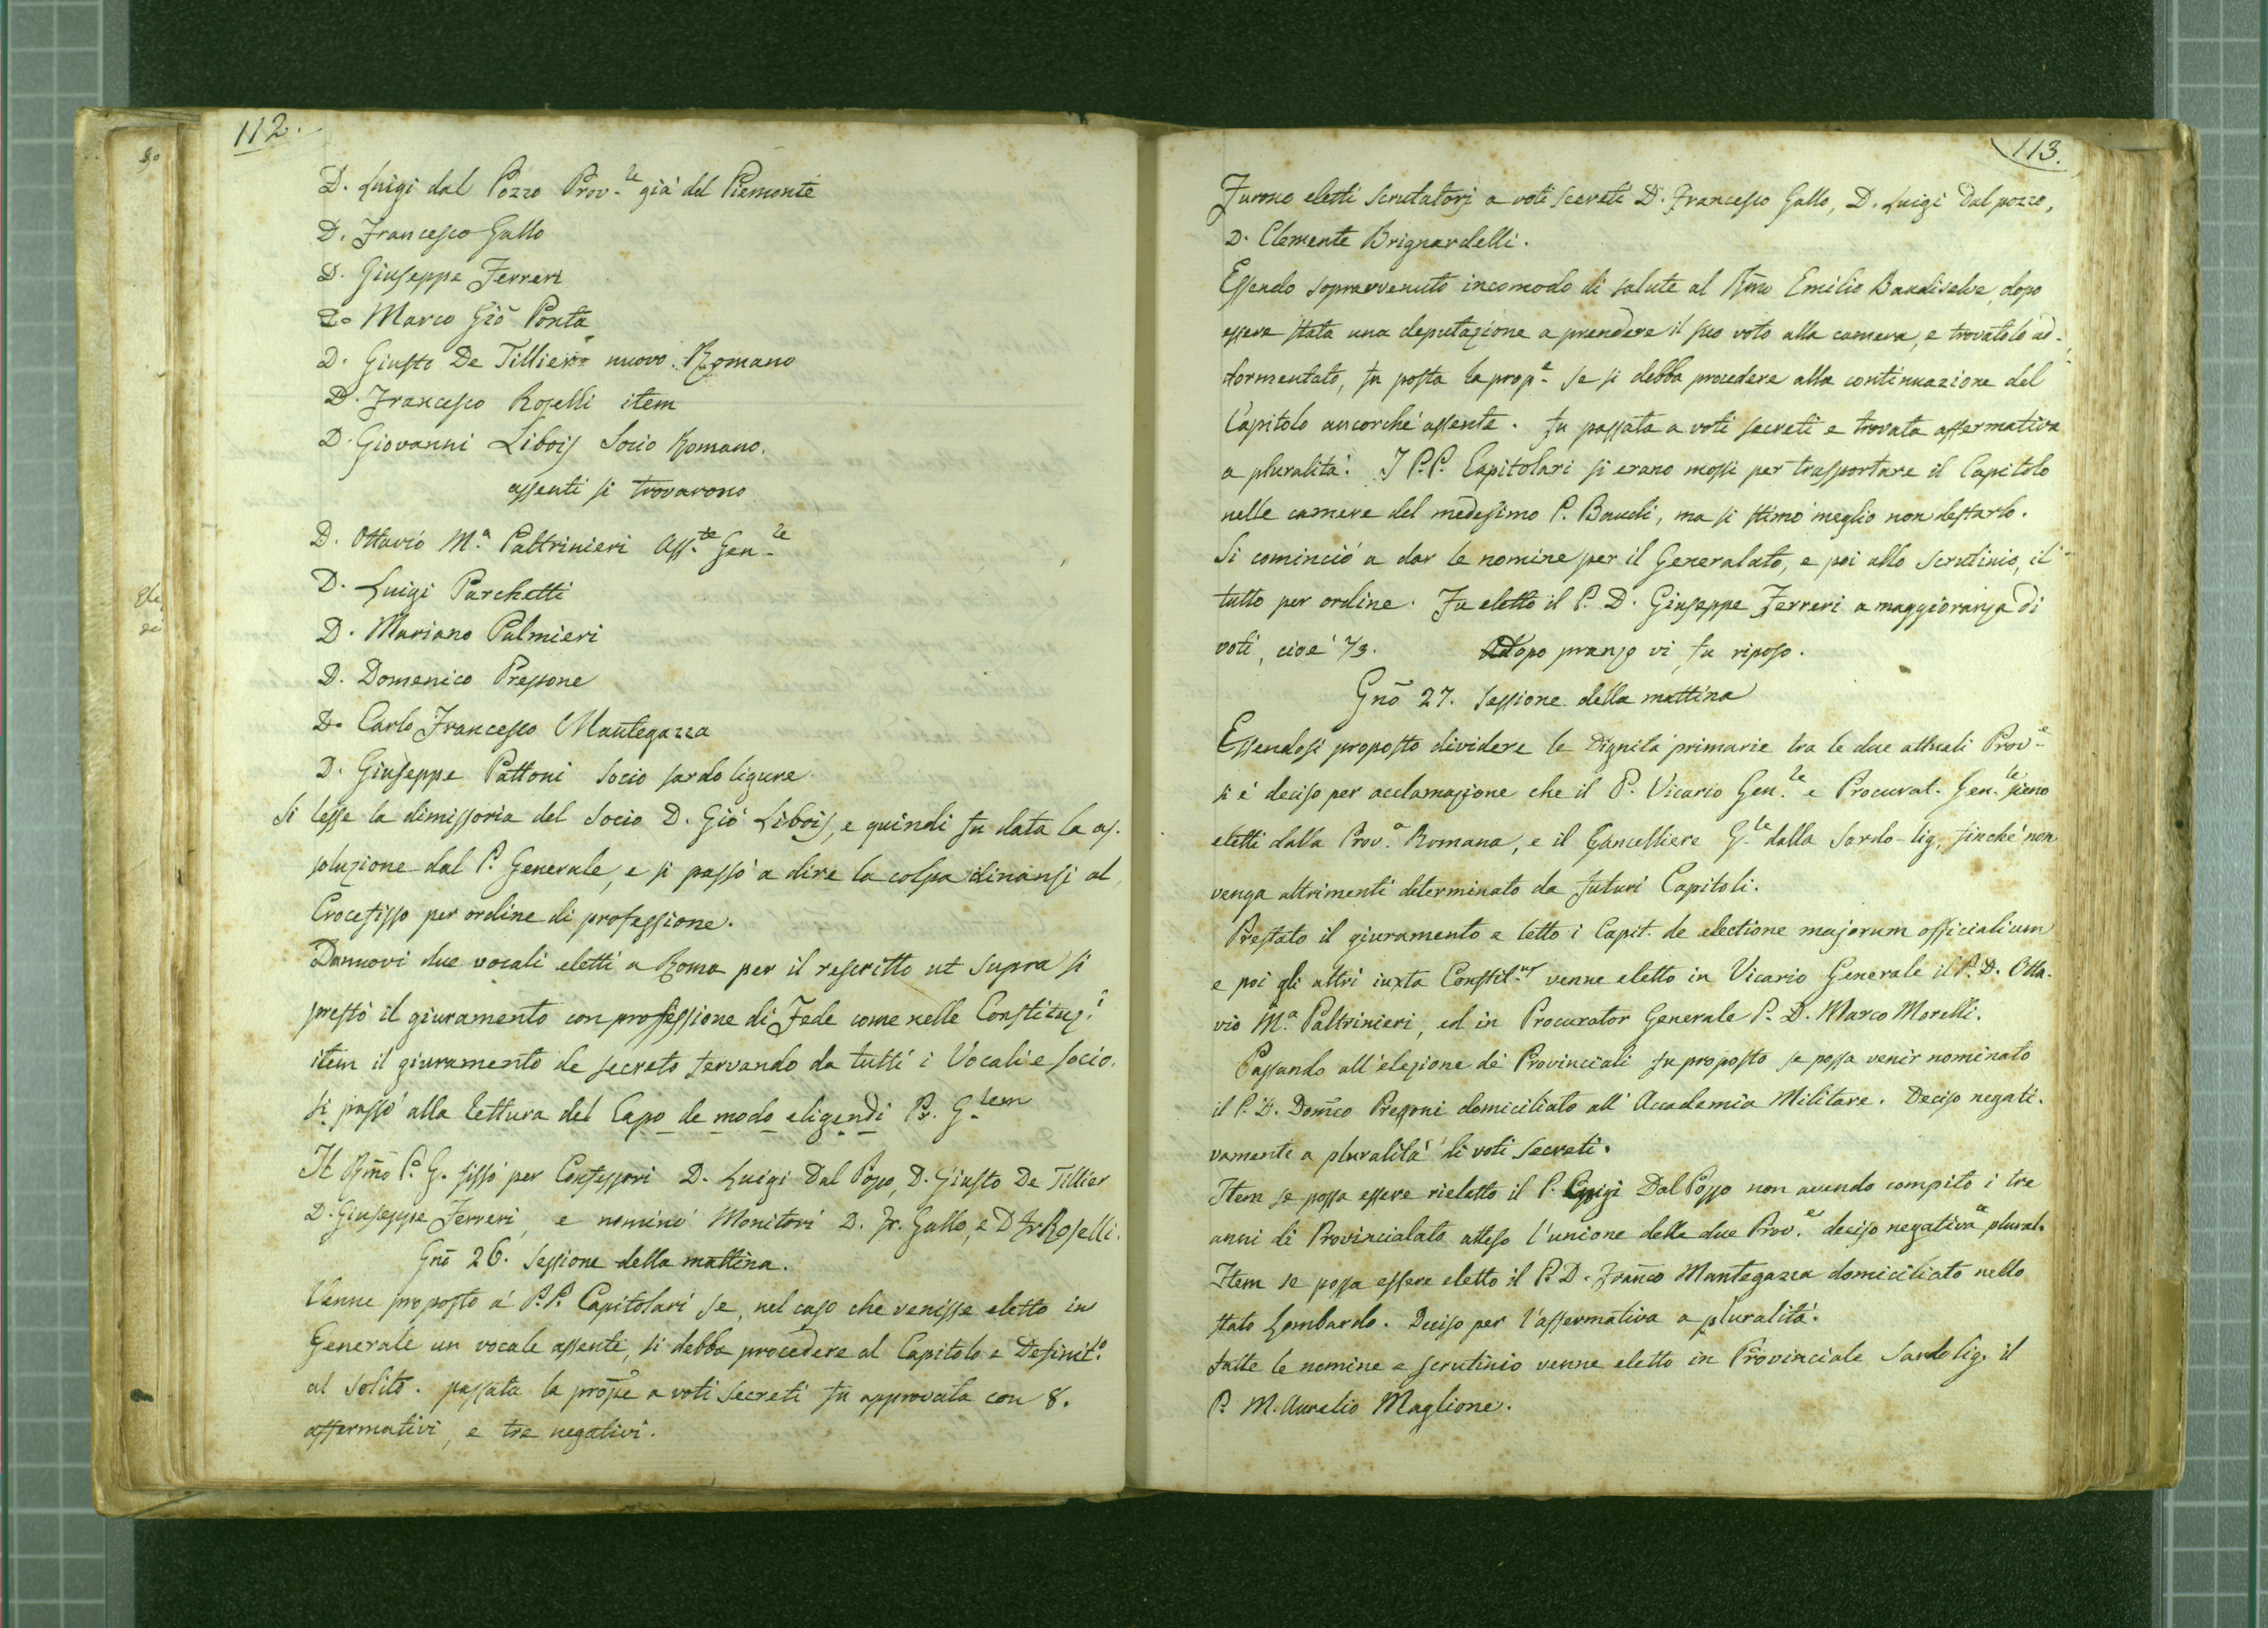 112.
D. Luigi dal Pozzo Prov.le già del Piemonte
D. Francesco Gallo
D. Giuseppe Ferreri
D. Marco Gio Ponta
D. Giusto De Tillier nuovo Romano
D. Francesco Roselli item
D. Giovanni Libois Socio Romano.
assenti si trovarono
D. Ottavio M.a Paltrinieri Ass.te Gen.le
D. Luigi Parchetti
D. Mariano Palmieri
D. Domenico Pressone
D. Carlo Francesco Mantegazza
D. Giuseppe Pattoni Socio sardo ligure
Si lesse la dimissoria del Socio D. Gio Libois, e quindi fu data la as-
soluzione dal P. Generale, e si passò a dire la colpa dinanzi al
Crocefisso per ordine di professione.
Dannovi due vocali eletti a Roma per il rescritto ut supra si
prestò il giuramento con professione di Fede come nelle Constituz.i
item il giuramento de secreto servando da tutti i Vocali e Socio.
si passò alla lettura del Capo de modo eligendi Pr. G.lem
Il Rmo P. G. fissò per Confessori D. Luigi Dal Pozzo, D. Giusto De Tillier
D. Giuseppe Ferreri, e nominò Monitori D. Fr. Gallo, e D Fr Roselli.
Gno 26. Sessione della mattina.
Venne proposto a' P.P. Capitolari se, nel caso che venisse eletto in
Generale un vocale assente, si debba procedere al Capitolo e Definit.o
al solito. passata la prope a voti secreti fu approvata con 8.
affermativi, e tre negativi.
113.
Furono eletti Scrutatorj a voti secreti D. Francesco Gallo, D. Luigi Dal pozzo,
D. Clemente Brignardelli.
Essendo sopravvenuto incomodo di salute al Rmo Emilio Baudiselve, dopo
essere stata una deputazione a prendere il suo voto alla camera, e trovatolo ad-
dormentato, fu posta la prop.e se si debba procedere alla continuazione del
Capitolo ancorché assente. fu passata a voti secreti e trovata affermativa
a pluralità. I P.P. Capitolari si erano mossi per trasportare il Capitolo
nelle camere del medesimo P. Baudi, ma si stimò meglio non destarlo.
Si cominciò a dar le nomine per il Generalato, e poi allo scrutinio, il
tutto per ordine. Fu eletto il P. D. Giuseppe Ferreri a maggioranza di
voti, cioè 7/3. dopo pranzo vi fu riposo.
Gno 27. Sessione della mattina
Essendosi proposto dividere le Dignità primarie tra le due attuali Prov.e
si è deciso per acclamazione che il P. Vicario Gen.le e Procurat. Gen.le sieno
eletti dalla Prov.a Romana, e il Cancelliere G.le dalla Sardo-lig, finchè non
venga altrimenti determinato da futuri Capitoli.
Prestato il giuramento e letto i Capit. de electione majorum officialium
e poi gli altri iuxta Constit.nes venne eletto in Vicario Generale il P. D. Otta-
vio M.a Paltrinieri, ed in Procurator Generale P. D. Marco Morelli.
Passando all'elezione dè Provinciali fu proposto se possa venir nominato
il P. D. Domco Pressoni domiciliato all'Accademia Militare. Deciso negati-
vamente a pluralità di voti secreti.
Item se possa essere rieletto il P. Luigi Dal Pozzo non avendo compito i tre
anni di Provincialato atteso l'unione delle due Prov.e deciso negativa a plural.
Item se possa essere eletto il P. D. Franco Mantegazza domiciliato nello
stato Lombardo. Deciso per l'affermativa a pluralità.
fatte le nomine e scrutinio venne eletto in Provinciale Sardo lig. il
P. M. Aurelio Maglione.